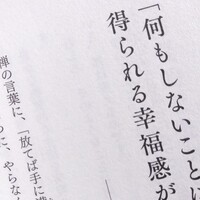 「何もしないことに
得られる幸福感が
禅の言葉に、「放てば手に満
うに、やらな